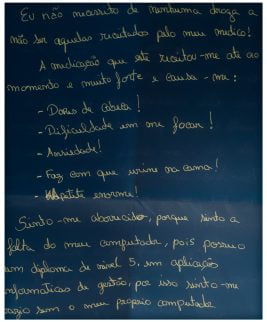 Eu não necessito de nenhuma droga a
não ser aquelas receitadas pelo meu médico!
A medicação que este receitou-me até ao
momento é muito forte e causa-me:
- Dores de cabeça!
- Dificuldade em me focar!
- Ansiedade!
- Faz com que urine na cama!
- Apetite enorme!
Sinto-me aborrecido, porque sinto a
falta do meu computador, pois possuo
um diploma de nível 5, em aplicações
informaticas de gestão, por isso sinto-me
vazio sem o meu proprio computador